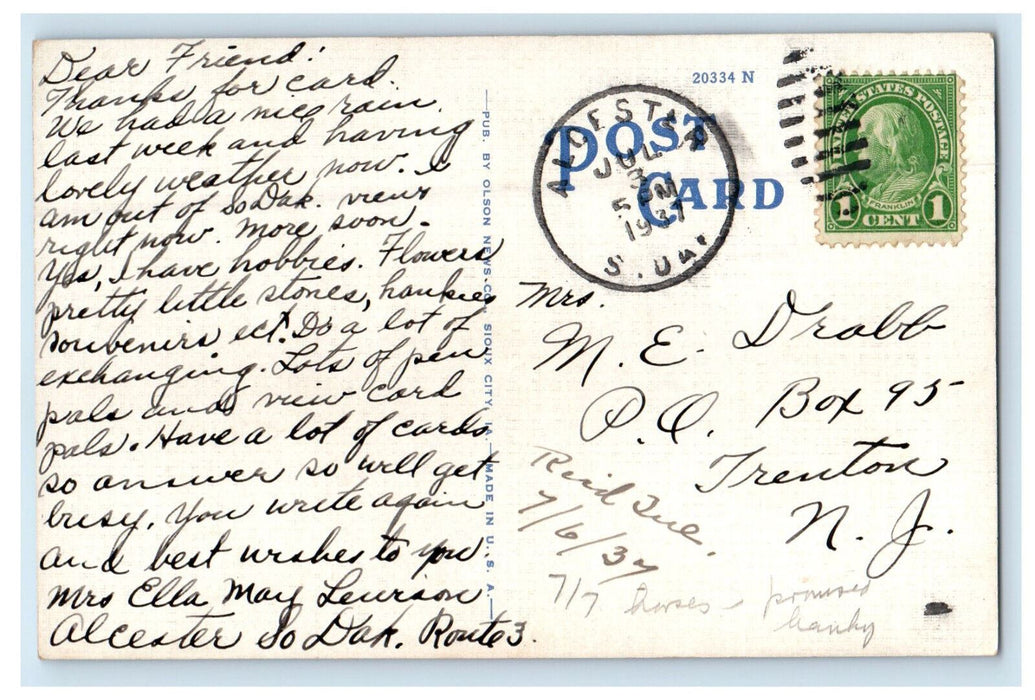 Dear Friend:
Thanks for card.
We had a nice rain
last week and having
lovely weather now. I
am out of So Dak. views
right now. More soon.
Yes, I have hobbies. Flowers
pretty little stones, hankies
souvenirs ect. Do a lot of
exchanging. Lots of pen
pals and view card
pals. Have a lot of cards
so answer so will get
busy. You write again
and best wishes to you
Mrs Ella May
Alcester So Dak. Route 3.
PUB. BY OLSON NEWS CO. SIOUX CITY, IA. MADE IN U.S.A.
20334 N
POST
CARD
ALCESTER
JUL
3
5 PM
1937
S. DAK.
STATES POSTAGE
FRANKLIN
1 CENT 1
Mrs.
M. E. Drabb
P.O. Box 95
Trenton
N. J.
Rec'd Tue.
7/6/37
7/7 horses - promised
hanky